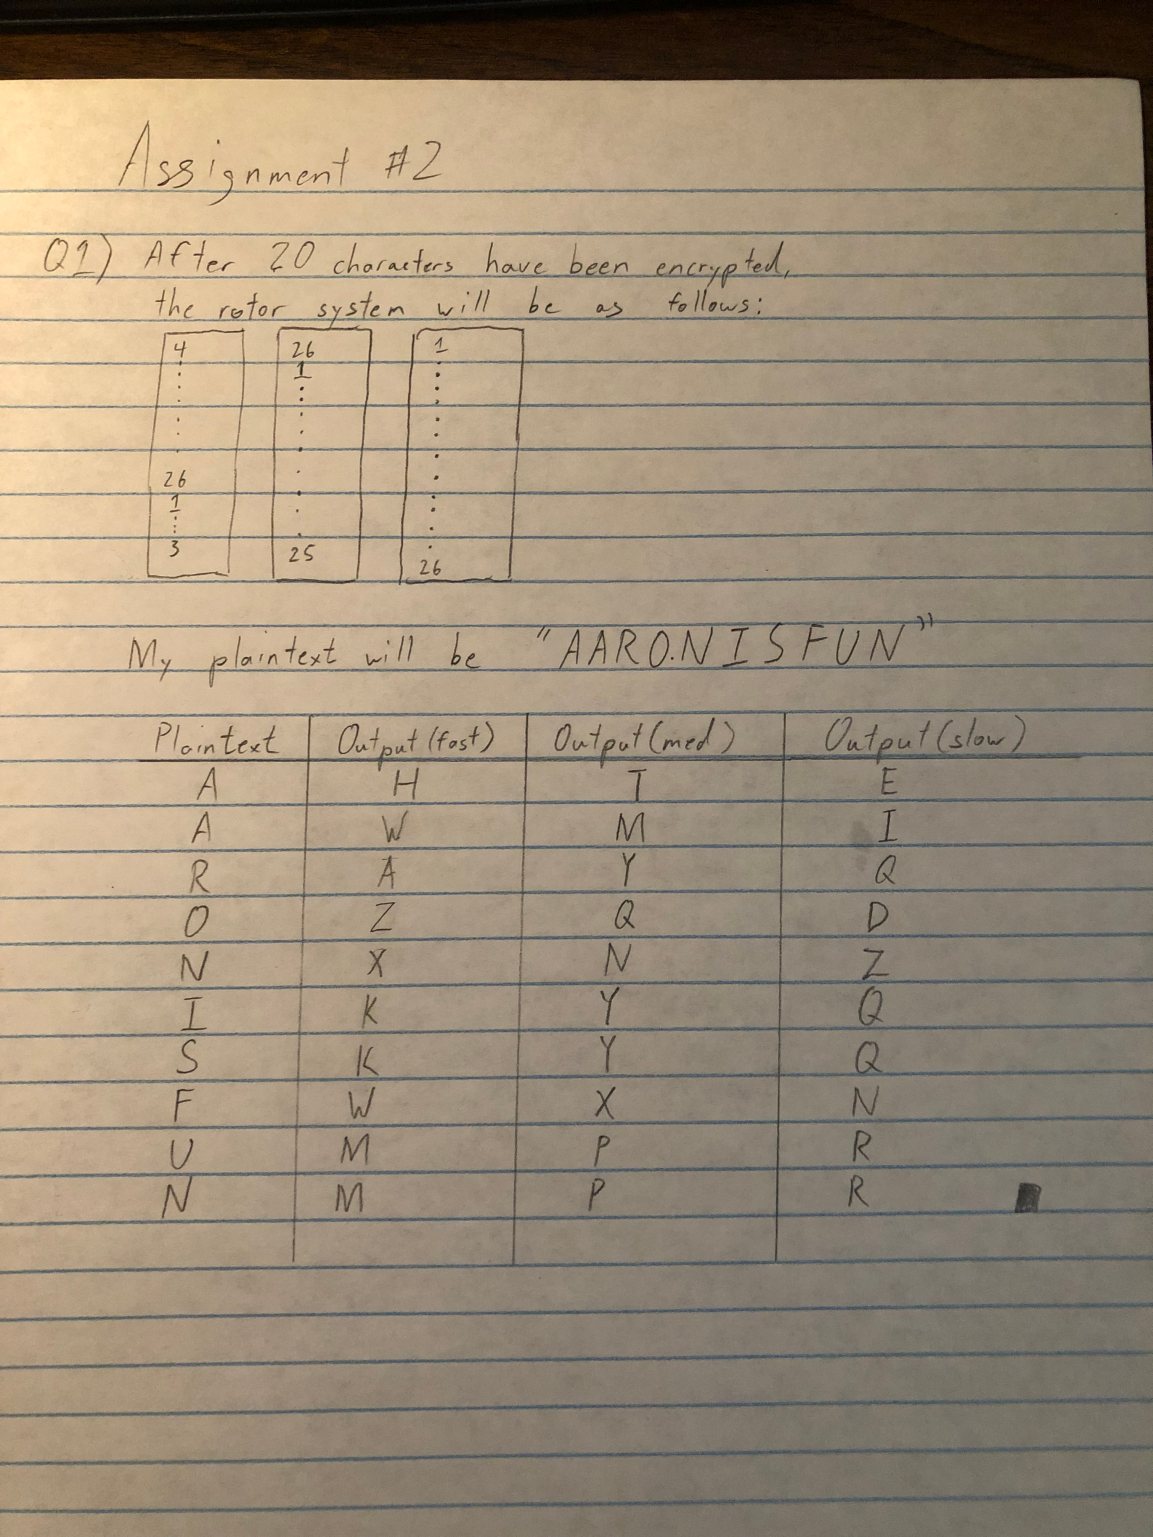 Assignment #2
Q1) After 20 characters have been encrypted,
the rotor system will be as follows:
4 26 1
1
26
1
3 25 26
My plaintext will be "AARO.NISFUN"
Plaintext Output (fast) Output (med) Output (slow)
A H T E
A W M I
R A Y Q
O Z Q D
N X N Z
I K Y Q
S K Y Q
F W X N
U M P R
N M P R